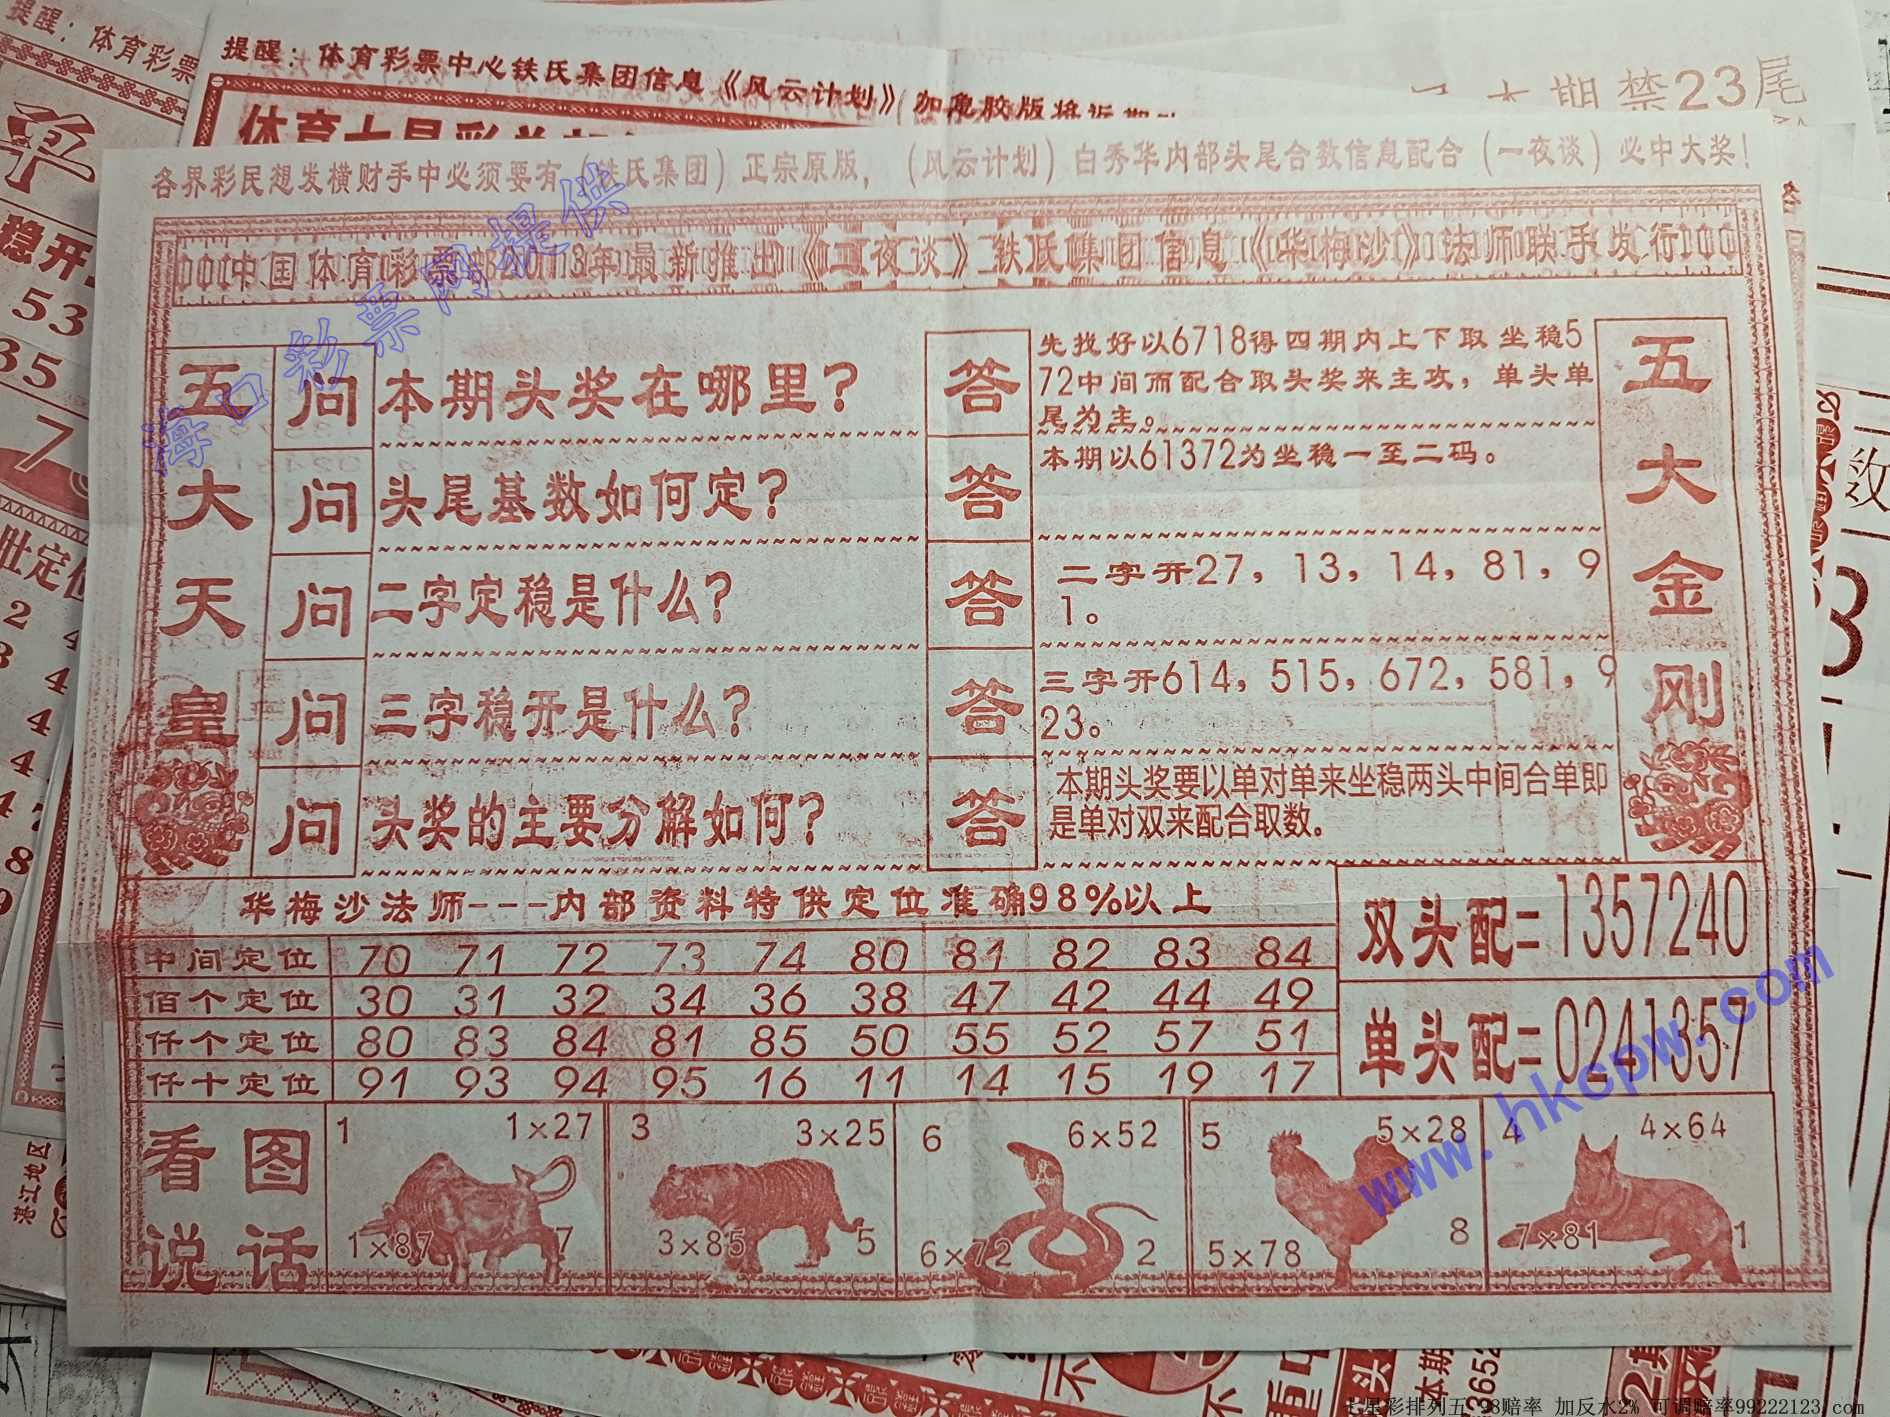 提醒：体育彩票中心铁氏集团信息《风云计划》
提醒：体育彩票
本期禁23尾
各界彩民想发横财手中必须要有（铁氏集团）正宗原版，（风云计划）白秀华内部头尾合数信息配合（一夜谈）必中大奖！
年最新推出《二夜谈》铁氏集团信息《华梅沙》法师联手发行
五大天皇
问 本期头奖在哪里？
答 先找好以6718得四期内上下取坐稳5
72中间而配合取头奖来主攻，单头单
尾为主。
问 头尾基数如何定？
答 本期以61372为坐稳一至二码。
问 二字定稳是什么？
答 二字开27，13，14，81，9
1。
问 三字稳开是什么？
答 三字开614，515，672，581，9
23。
问 头奖的主要分解如何？
答 本期头奖要以单对单来坐稳两头中间合单即
是单对双来配合取数。
五大金刚
华梅沙法师---内部资料特供定位准确98%以上
中间定位 70 71 72 73 74 80 81 82 83 84
佰个定位 30 31 32 34 36 38 47 42 44 49
仟个定位 80 83 84 81 85 50 55 52 57 51
仟十定位 91 93 94 95 16 11 14 15 19 17
双头配=1357240
单头配=0241357
看图
说话
1 1×27
1×87 7
3 3×25
3×85 5
6 6×52
6×72 2
5 5×28
5×78 8
4 4×64
7×81 1
海口彩票网提供
www.hkcpw.com
稳开
53
35
7
湛江地区
七星彩排列五 98赔率 加反水2% 可调赔率99222123.com